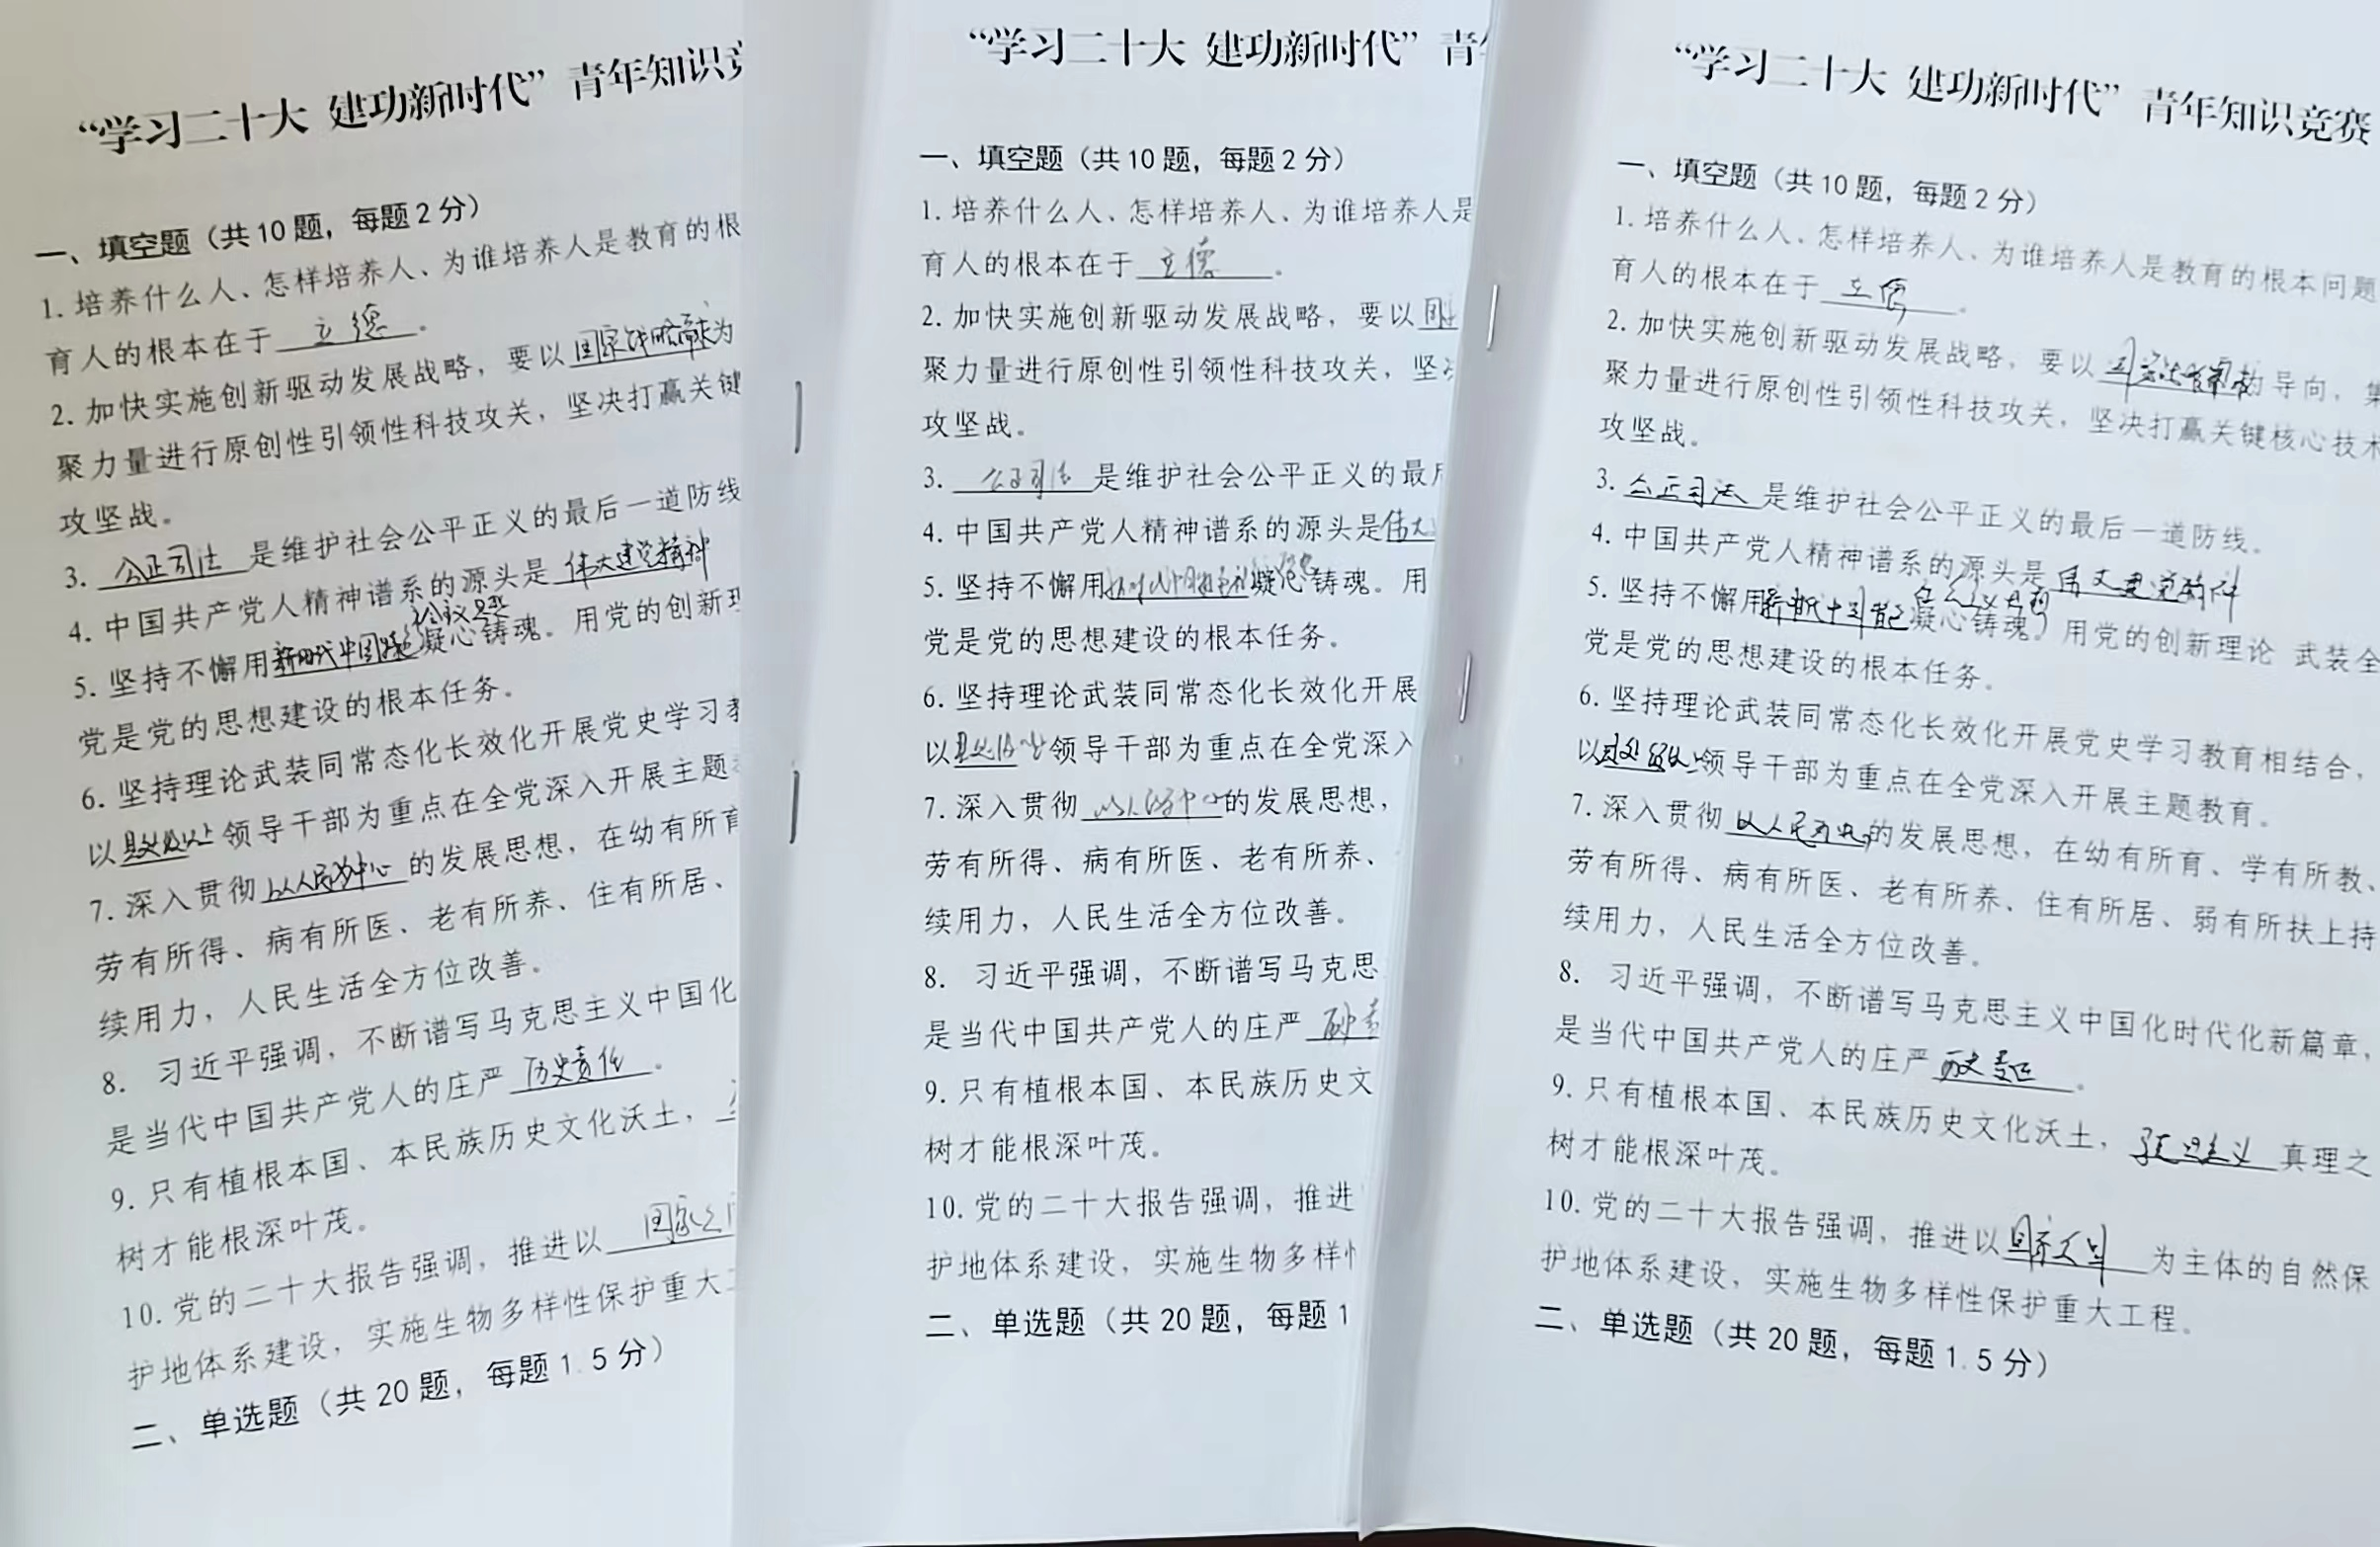 “学习二十大 建功新时代”青年知识竞
一、填空题（共10题，每题2分）
1. 培养什么人、怎样培养人、为谁培养人是教育的根
育人的根本在于 立德 。
2. 加快实施创新驱动发展战略，要以国家战略需求为
聚力量进行原创性引领性科技攻关，坚决打赢关键
攻坚战。
3. 公正司法 是维护社会公平正义的最后一道防线
4. 中国共产党人精神谱系的源头是 伟大建党精神
5. 坚持不懈用新时代中国特色会主义思想凝心铸魂。用党的创新理
党是党的思想建设的根本任务。
6. 坚持理论武装同常态化长效化开展党史学习教
以县处级以上领导干部为重点在全党深入开展主题
7. 深入贯彻 以人民为中心 的发展思想，在幼有所育
劳有所得、病有所医、老有所养、住有所居、
续用力，人民生活全方位改善。
8. 习近平强调，不断谱写马克思主义中国化
是当代中国共产党人的庄严 历史责任 。
9. 只有植根本国、本民族历史文化沃土，
树才能根深叶茂。
10. 党的二十大报告强调，推进以 国家公
护地体系建设，实施生物多样性保护重大
二、单选题（共20题，每题1.5分）
“学习二十大 建功新时代”青
一、填空题（共10题，每题2分）
1. 培养什么人、怎样培养人、为谁培养人是
育人的根本在于 立德 。
2. 加快实施创新驱动发展战略，要以国
聚力量进行原创性引领性科技攻关，坚
攻坚战。
3. 公正司法 是维护社会公平正义的最
4. 中国共产党人精神谱系的源头是伟大
5. 坚持不懈用凝心铸魂。用
党是党的思想建设的根本任务。
6. 坚持理论武装同常态化长效化开展
以县处级以上领导干部为重点在全党深入
7. 深入贯彻 以人民为中心的发展思想，
劳有所得、病有所医、老有所养、
续用力，人民生活全方位改善。
8. 习近平强调，不断谱写马克思
是当代中国共产党人的庄严 历史责
9. 只有植根本国、本民族历史文
树才能根深叶茂。
10. 党的二十大报告强调，推进
护地体系建设，实施生物多样
二、单选题（共20题，每题1
“学习二十大 建功新时代”青年知识竞赛
一、填空题（共10题，每题2分）
1. 培养什么人、怎样培养人、为谁培养人是教育的根本问题
育人的根本在于 立德 。
2. 加快实施创新驱动发展战略，要以国家战略需求为导向，集
聚力量进行原创性引领性科技攻关，坚决打赢关键核心技术
攻坚战。
3. 公正司法 是维护社会公平正义的最后一道防线。
4. 中国共产党人精神谱系的源头是 伟大建党精神
5. 坚持不懈用凝心铸魂。用党的创新理论 武装全
党是党的思想建设的根本任务。
6. 坚持理论武装同常态化长效化开展党史学习教育相结合，
以县处级以上领导干部为重点在全党深入开展主题教育。
7. 深入贯彻 以人民为中心的发展思想，在幼有所育、学有所教、
劳有所得、病有所医、老有所养、住有所居、弱有所扶上持
续用力，人民生活全方位改善。
8. 习近平强调，不断谱写马克思主义中国化时代化新篇章，
是当代中国共产党人的庄严 历史责任 。
9. 只有植根本国、本民族历史文化沃土，马克思主义 真理之
树才能根深叶茂。
10. 党的二十大报告强调，推进以国家公园 为主体的自然保
护地体系建设，实施生物多样性保护重大工程。
二、单选题（共20题，每题1.5分）